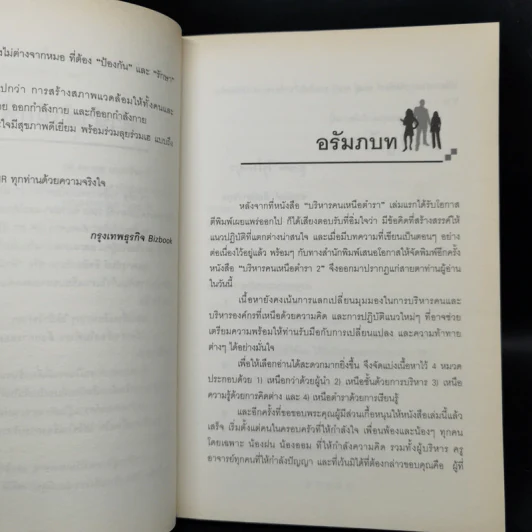 งไม่ต่างจากหมอ ที่ต้อง "ป้องกัน" และ "รักษา"
ปกว่า การสร้างสภาพแวดล้อมให้ทั้งคนและ
าย ออกกำลังกาย และก็ออกกำลังกาย
ะใจมีสุขภาพดีเยี่ยม พร้อมร่วมลุยร่วมเฮ แบบถึง
HR ทุกท่านด้วยความจริงใจ
กรุงเทพธุรกิจ Bizbook
อรัมภบท
หลังจากที่หนังสือ "บริหารคนเหนือตำรา" เล่มแรกได้รับโอกาส
ตีพิมพ์เผยแพร่ออกไป ก็ได้เสียงตอบรับที่อิ่มใจว่า มีข้อคิดที่สร้างสรรค์ให้
แนวปฏิบัติที่แตกต่างน่าสนใจ และเมื่อมีบทความที่เขียนเป็นตอนๆ อย่าง
ต่อเนื่องไว้อยู่แล้ว พร้อมๆ กับทางสำนักพิมพ์เสนอโอกาสให้จัดพิมพ์อีกครั้ง
หนังสือ "บริหารคนเหนือตำรา 2" จึงออกมาปรากฏแก่สายตาท่านผู้อ่าน
ในวันนี้
เนื้อหายังคงเน้นการแลกเปลี่ยนมุมมองในการบริหารคนและ
บริหารองค์กรที่เหนือด้วยความคิด และการปฏิบัติแนวใหม่ๆ ที่อาจช่วย
เตรียมความพร้อมให้ท่านรับมือกับการเปลี่ยนแปลง และความท้าทาย
ต่างๆ ได้อย่างมั่นใจ
เพื่อให้เลือกอ่านได้สะดวกมากยิ่งขึ้น จึงจัดแบ่งเนื้อหาไว้ 4 หมวด
ประกอบด้วย 1) เหนือกว่าด้วยผู้นำ 2) เหนือชั้นด้วยการบริหาร 3) เหนือ
ความรู้ด้วยการคิดต่าง และ 4) เหนือตำราด้วยการเรียนรู้
และอีกครั้งที่ขอขอบพระคุณผู้มีส่วนเกื้อหนุนให้หนังสือเล่มนี้แล้ว
เสร็จ เริ่มตั้งแต่คนในครอบครัวที่ให้กำลังใจ เพื่อนพ้องและน้องๆ ทุกคน
โดยเฉพาะ น้องฝน น้องออม ที่ให้กำลังความคิด รวมทั้งผู้บริหาร ครู
อาจารย์ทุกคนที่ให้กำลังปัญญา และที่เว้นมิได้ที่ต้องกล่าวขอบคุณคือ ผู้ที่